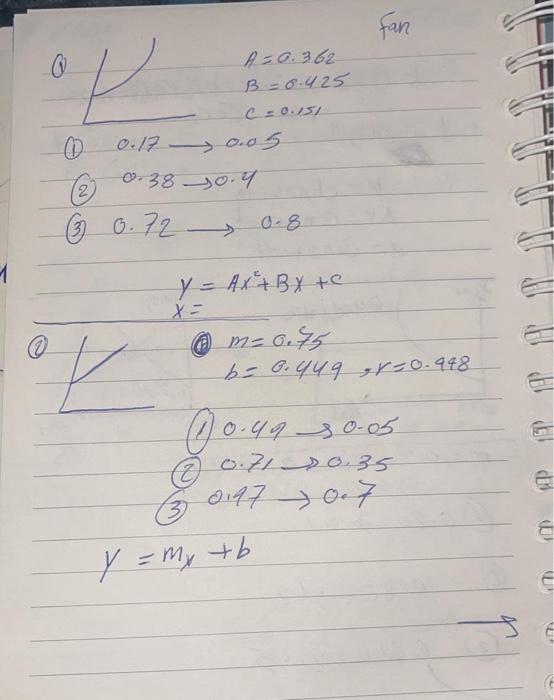 Fan
① A = 0.362
B = 0.425
C = 0.151
① 0.17 → 0.05
② 0.38 → 0.4
③ 0.72 → 0.8
y = Ax² + Bx + C
x =
② m = 0.75
b = 0.449 , r = 0.998
① 0.49 → 0.05
② 0.71 → 0.35
③ 0.97 → 0.7
y = mx + b
→